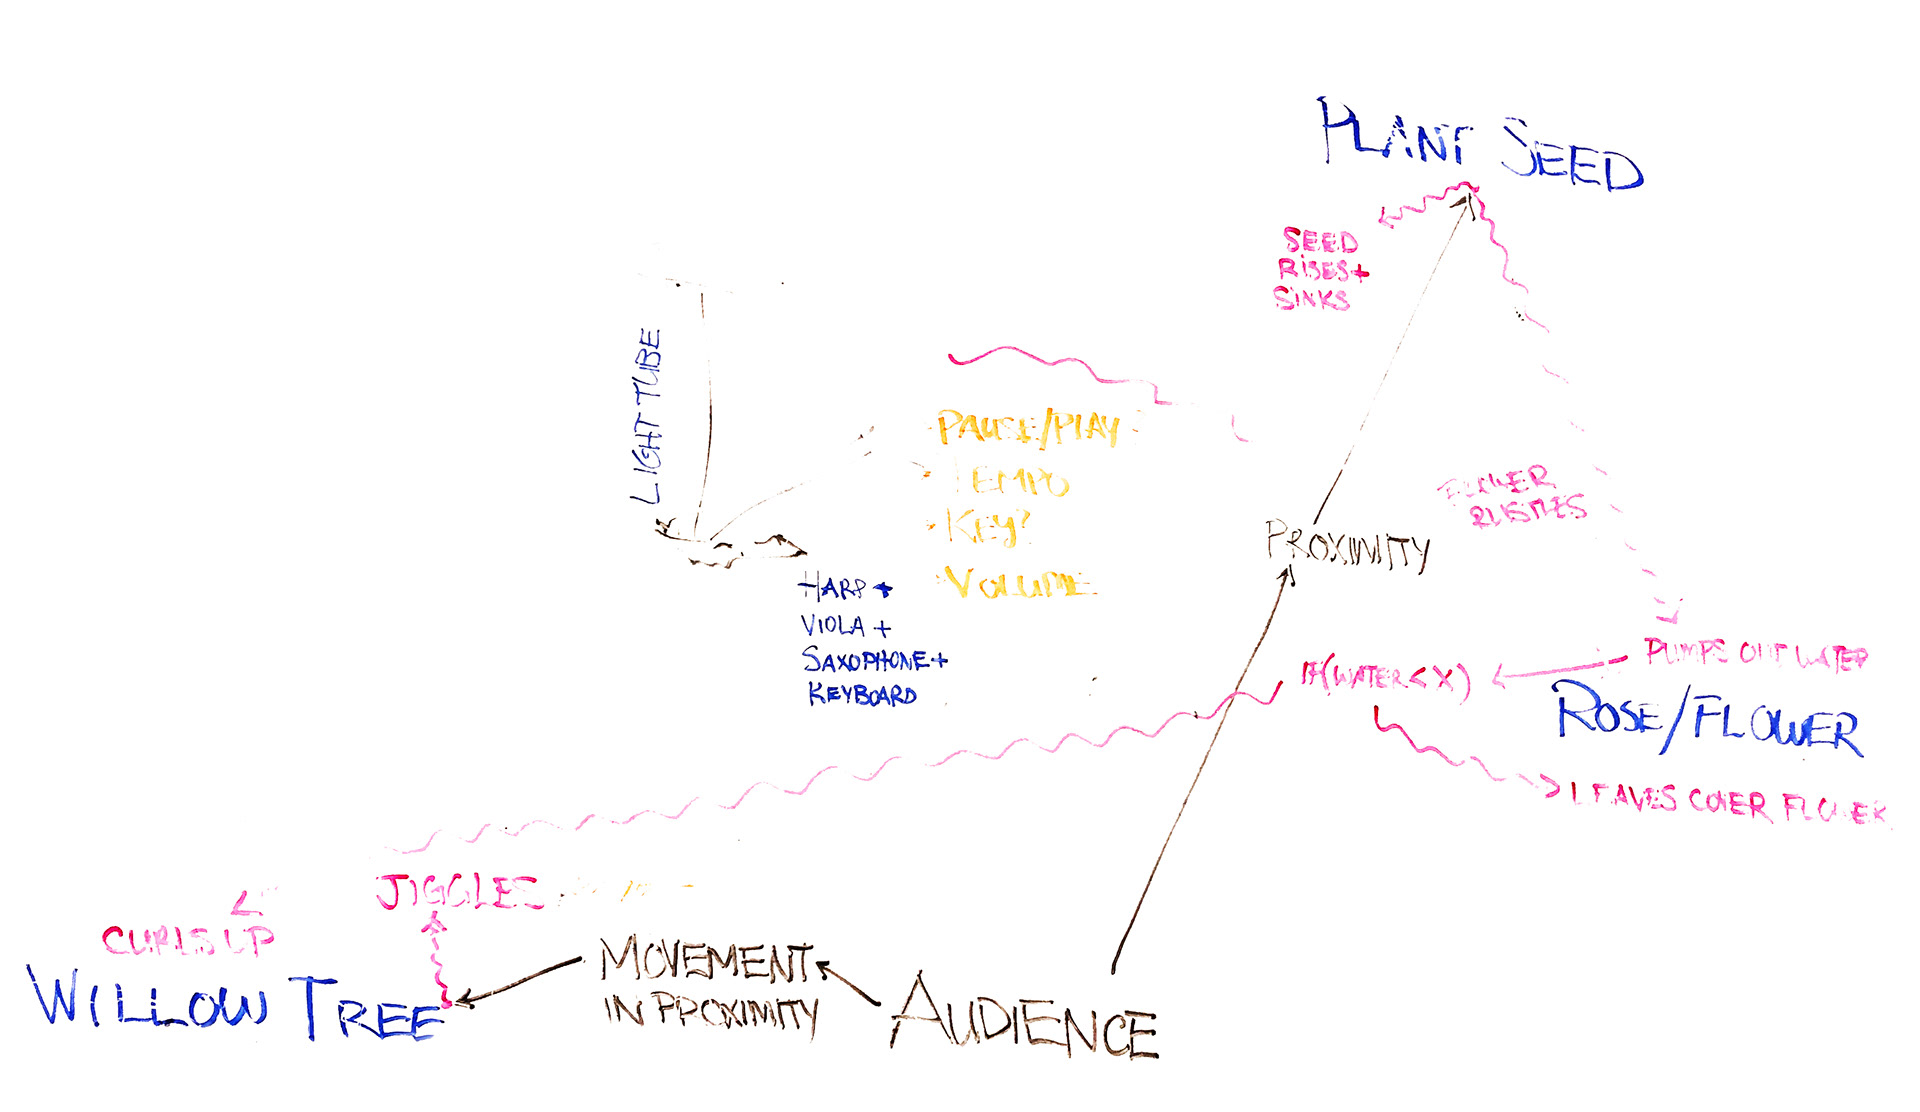 PLANT SEED
SEED
RISES+
SINKS
LIGHT TUBE
PAUSE/PLAY
TEMPO
KEY?
VOLUME
FLOWER
RUSTLES
PROXIMITY
HARP +
VIOLA +
SAXOPHONE+
KEYBOARD
IF(WATER < X)
PUMPS OUT WATER
ROSE/FLOWER
LEAVES COVER FLOWER
JIGGLES
CURLS UP
WILLOW TREE
MOVEMENT
IN PROXIMITY
AUDIENCE